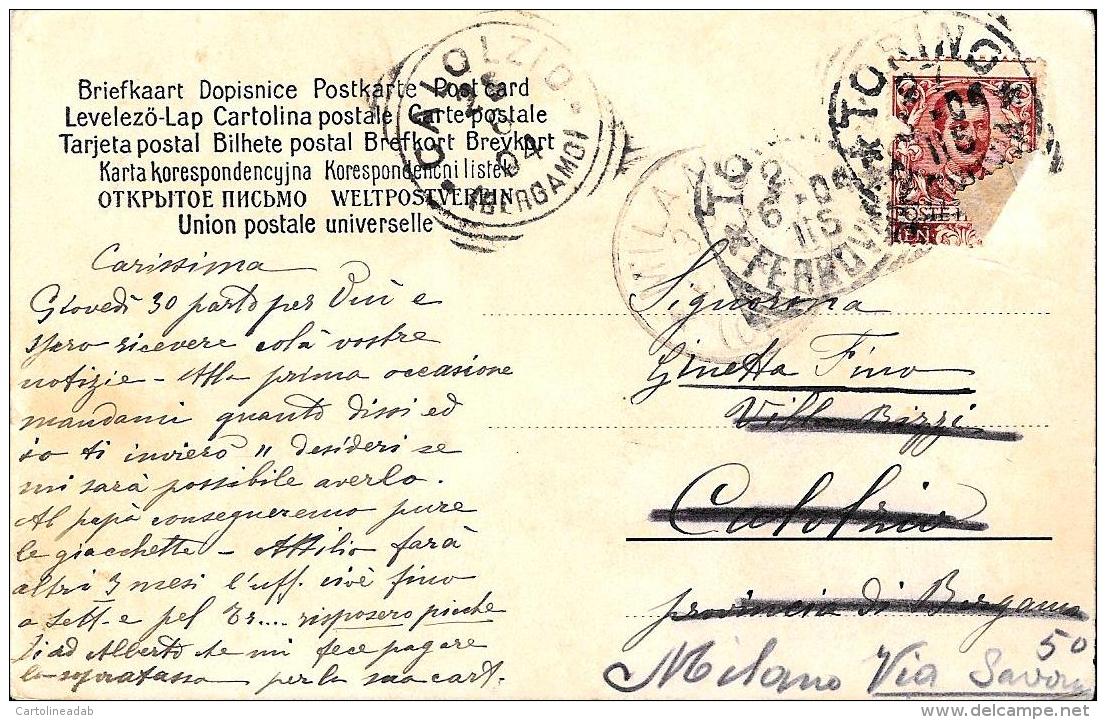 Briefkaart Dopisnice Postkarte Post card
Levelező-Lap Cartolina postale Carte postale
Tarjeta postal Bilhete postal Brefkort Brevkort
Karta korespondencyjna Korespondenčni listek
ОТКРЫТОЕ ПИСЬМО WELTPOSTVEREIN
Union postale universelle
CALOLZIO
(BERGAMO)
04
TORINO
FERROVIA
MILANO
POSTE I
Carissima
Giovedì 30 parto per Viù e
spero ricevere colà vostre
notizie - Alla prima occasione
mandami quanto dissi ed
io ti invierò " desideri se
mi sarà possibile averlo.
Al papà consegneremo pure
le giacchette - Attilio farà
altri 3 mesi l'uff. cioè fino
a sett. e pel Er.... risposero picche
Di ad Alberto che mi fece pagare
la sopratassa per la sua cart.
Signorina
Ginetta Fino
Villa Bizzi
Calolzio
provincia di Bergamo
Milano Via Savona
50
© Cartolineadab
http://www.delcampe.net